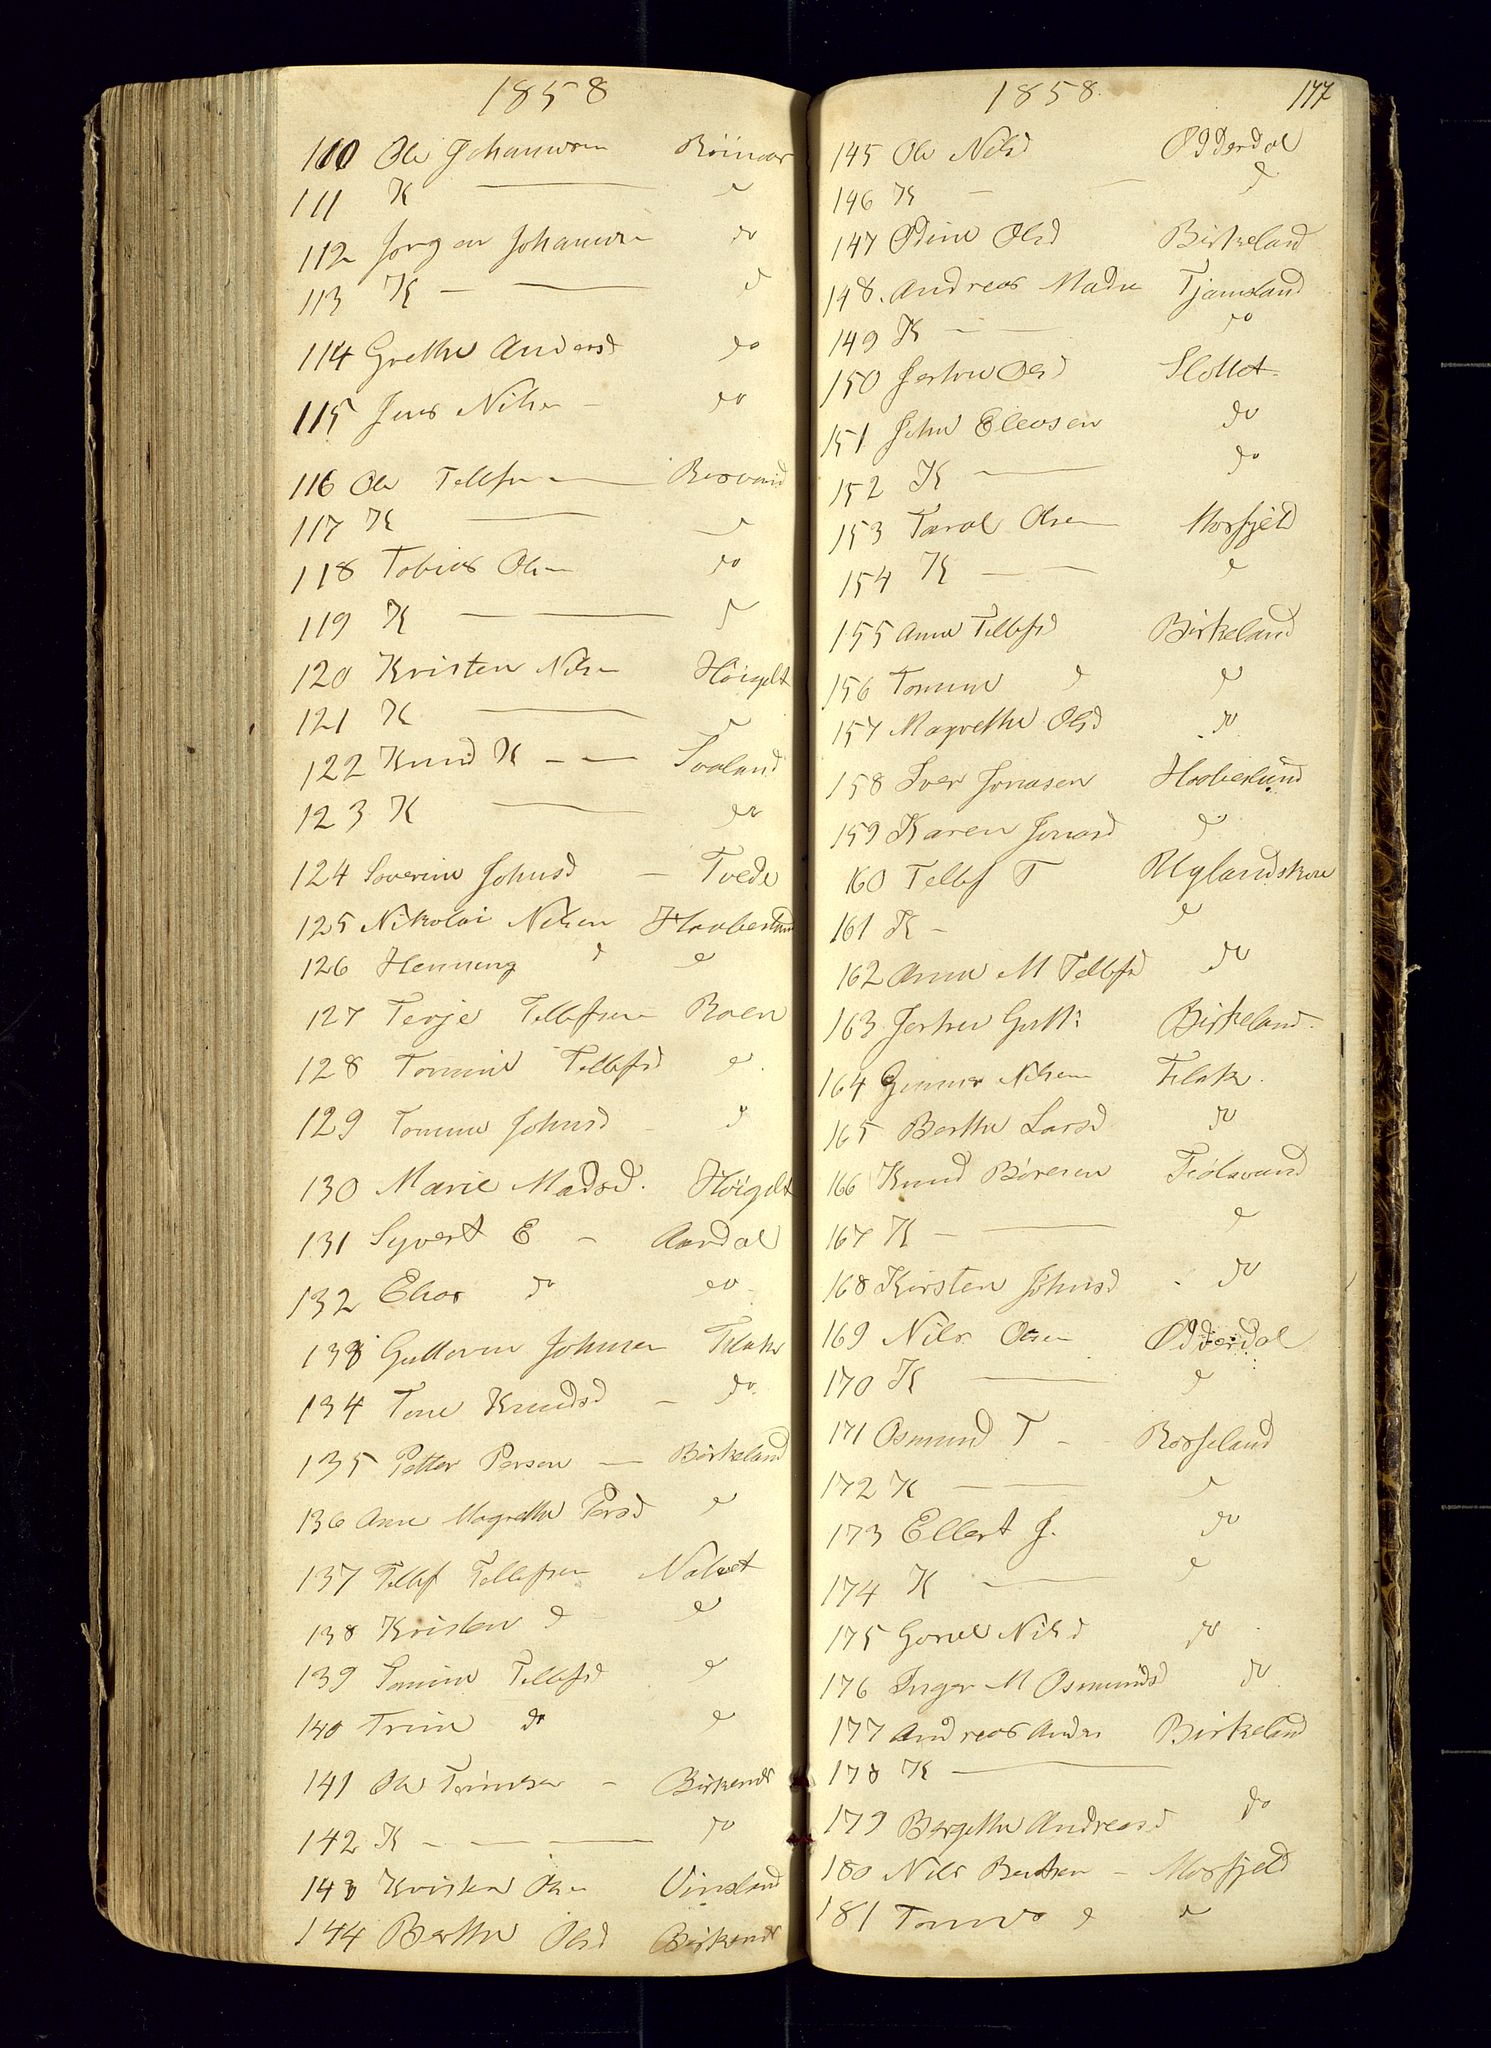 1858
110 Ole Johannsen
111 K — d
112 Jørgen Johannsen do
113 K — — d
114 Grethe Andersd do
115 Jens Nilsen — do
116 Ole Tellefsen — Resvand
117 K — d
118 Tobias Olsen do
119 K — d
120 Kristen Nilsen Höigilt
121 K — d
122 Knud K — — Svaland
123 K — do
124 Severine Johnsd — Tvede
125 Nikolai Nilsen Haabeslund
126 Henning d d
127 Terje Tellefsen Boen
128 Tomine Tellefsd d
129 Tomine Johnsd d
130 Marie Madsd. Höigilt
131 Syvert E — Aardal
132 Elias do do
133 Guttorm Johnsen Flak
134 Tone Knudsd — do
135 Petter Persen — Birkeland
136 Anne Magrethe Persd d
137 Tellef Tellefsen
138 Kristen d d
139 Tomine Tellefsd d
140 Trine do d
141 Ole — Birkenes
142 K — — — do
143 Kristen Olsen Vinsland
144 Berthe Olsd Birkenes
1858. 177
145 Ole Nilsd Odderdal
146 K — — d
147 Odine Olsd Birkeland
148. Andreas Madsen Tjamsland
149 K — — do
150 Olsd Slottet
151 John Eleasen do
152 K — do
153 Tarol Olsen Mosfjeld
154 K — — d
155 Anne Tellefsd Birkeland
156 Tomine d d
157 Magrethe Olsd do
158 Iver Jonasen Haabeslund
159 Karen Jonasd d
160 Tellef T
161 K — d
162 Anne M Tellefsd do
163. Birkeland.
164 Gunner Nilsen Flak.
165 Berthe Larsd do
166 Knud Børesen
167 K — d
168 Kirsten Johnsd . do
169 Nils Olsen Odderdal
170 K — d
171 Osmund T — Rosseland
172 K — d
173 Ellert J. do
174 K — d
175 Gorine Nilsd do
176 Inger M Osmundsd do
177 Andreas Anders Birkeland
178 K —
179 Bergethe Andreasd do
180 Nils Bentsen — Mosfjeld
181 d d